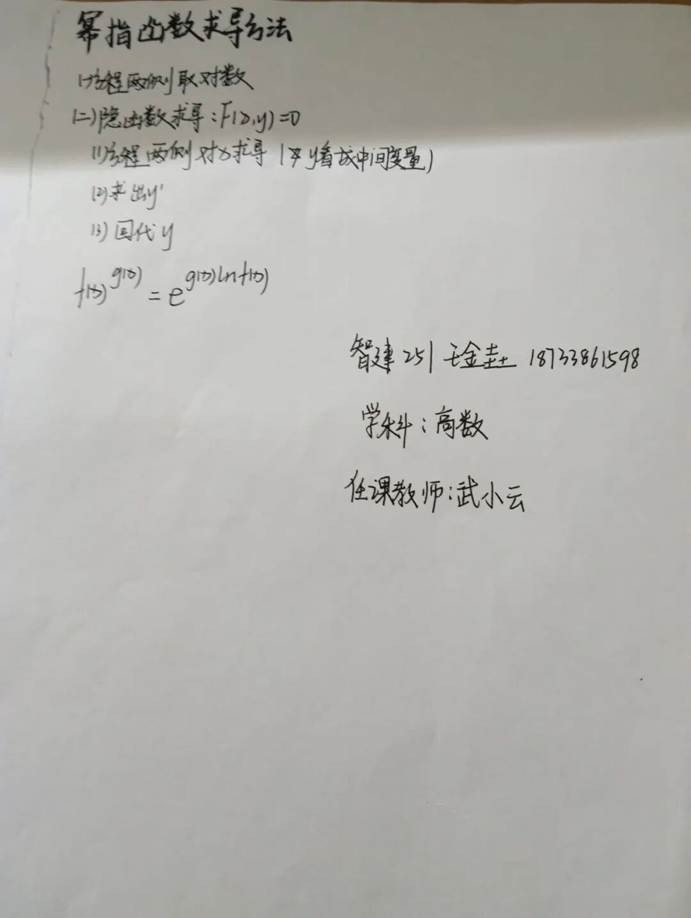 幂指函数求导方法
(一)方程两侧取对数
(二)隐函数求导:F(x,y)=0
(1)方程两侧对x求导(视y看成中间变量)
(2)求出y'
(3)回代y
f(x)^g(x) = e^g(x)lnf(x)
智建251 王金垚 18733861598
学科:高数
任课教师:武小云